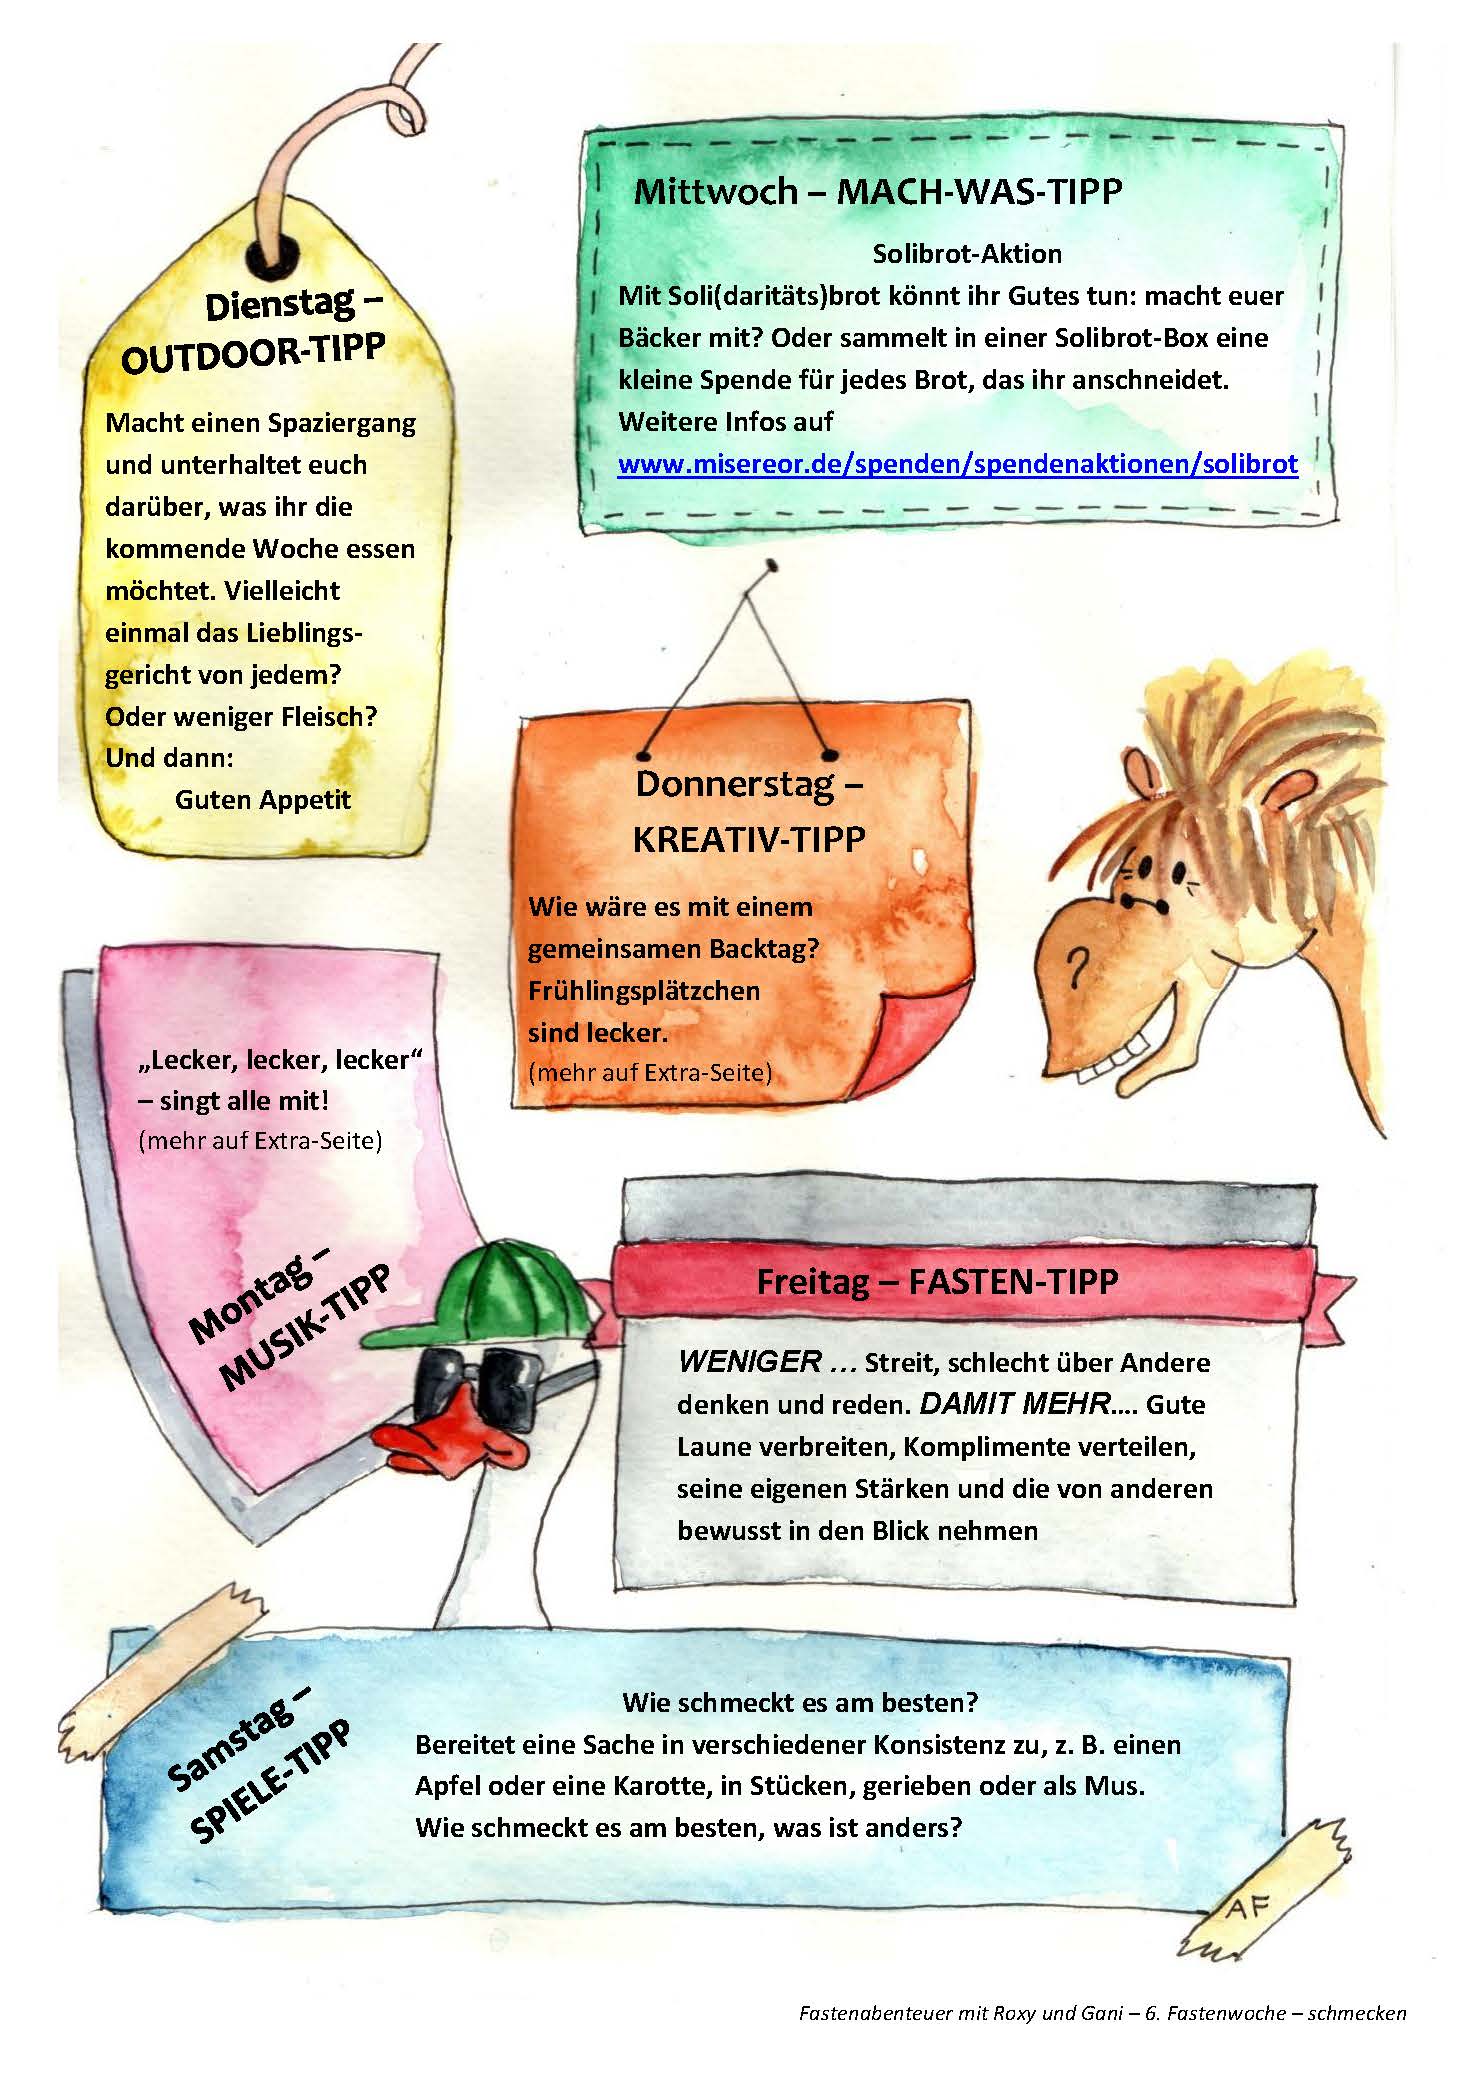 Dienstag –
OUTDOOR-TIPP
Macht einen Spaziergang
und unterhaltet euch
darüber, was ihr die
kommende Woche essen
möchtet. Vielleicht
einmal das Lieblings-
gericht von jedem?
Oder weniger Fleisch?
Und dann:
Guten Appetit
Mittwoch – MACH-WAS-TIPP
Solibrot-Aktion
Mit Soli(daritäts)brot könnt ihr Gutes tun: macht euer
Bäcker mit? Oder sammelt in einer Solibrot-Box eine
kleine Spende für jedes Brot, das ihr anschneidet.
Weitere Infos auf
www.misereor.de/spenden/spendenaktionen/solibrot
Donnerstag –
KREATIV-TIPP
Wie wäre es mit einem
gemeinsamen Backtag?
Frühlingsplätzchen
sind lecker.
(mehr auf Extra-Seite)
„Lecker, lecker, lecker“
– singt alle mit!
(mehr auf Extra-Seite)
Montag –
MUSIK-TIPP
Freitag – FASTEN-TIPP
WENIGER … Streit, schlecht über Andere
denken und reden. DAMIT MEHR.... Gute
Laune verbreiten, Komplimente verteilen,
seine eigenen Stärken und die von anderen
bewusst in den Blick nehmen
Samstag –
SPIELE-TIPP
Wie schmeckt es am besten?
Bereitet eine Sache in verschiedener Konsistenz zu, z. B. einen
Apfel oder eine Karotte, in Stücken, gerieben oder als Mus.
Wie schmeckt es am besten, was ist anders?
AF
Fastenabenteuer mit Roxy und Gani – 6. Fastenwoche – schmecken